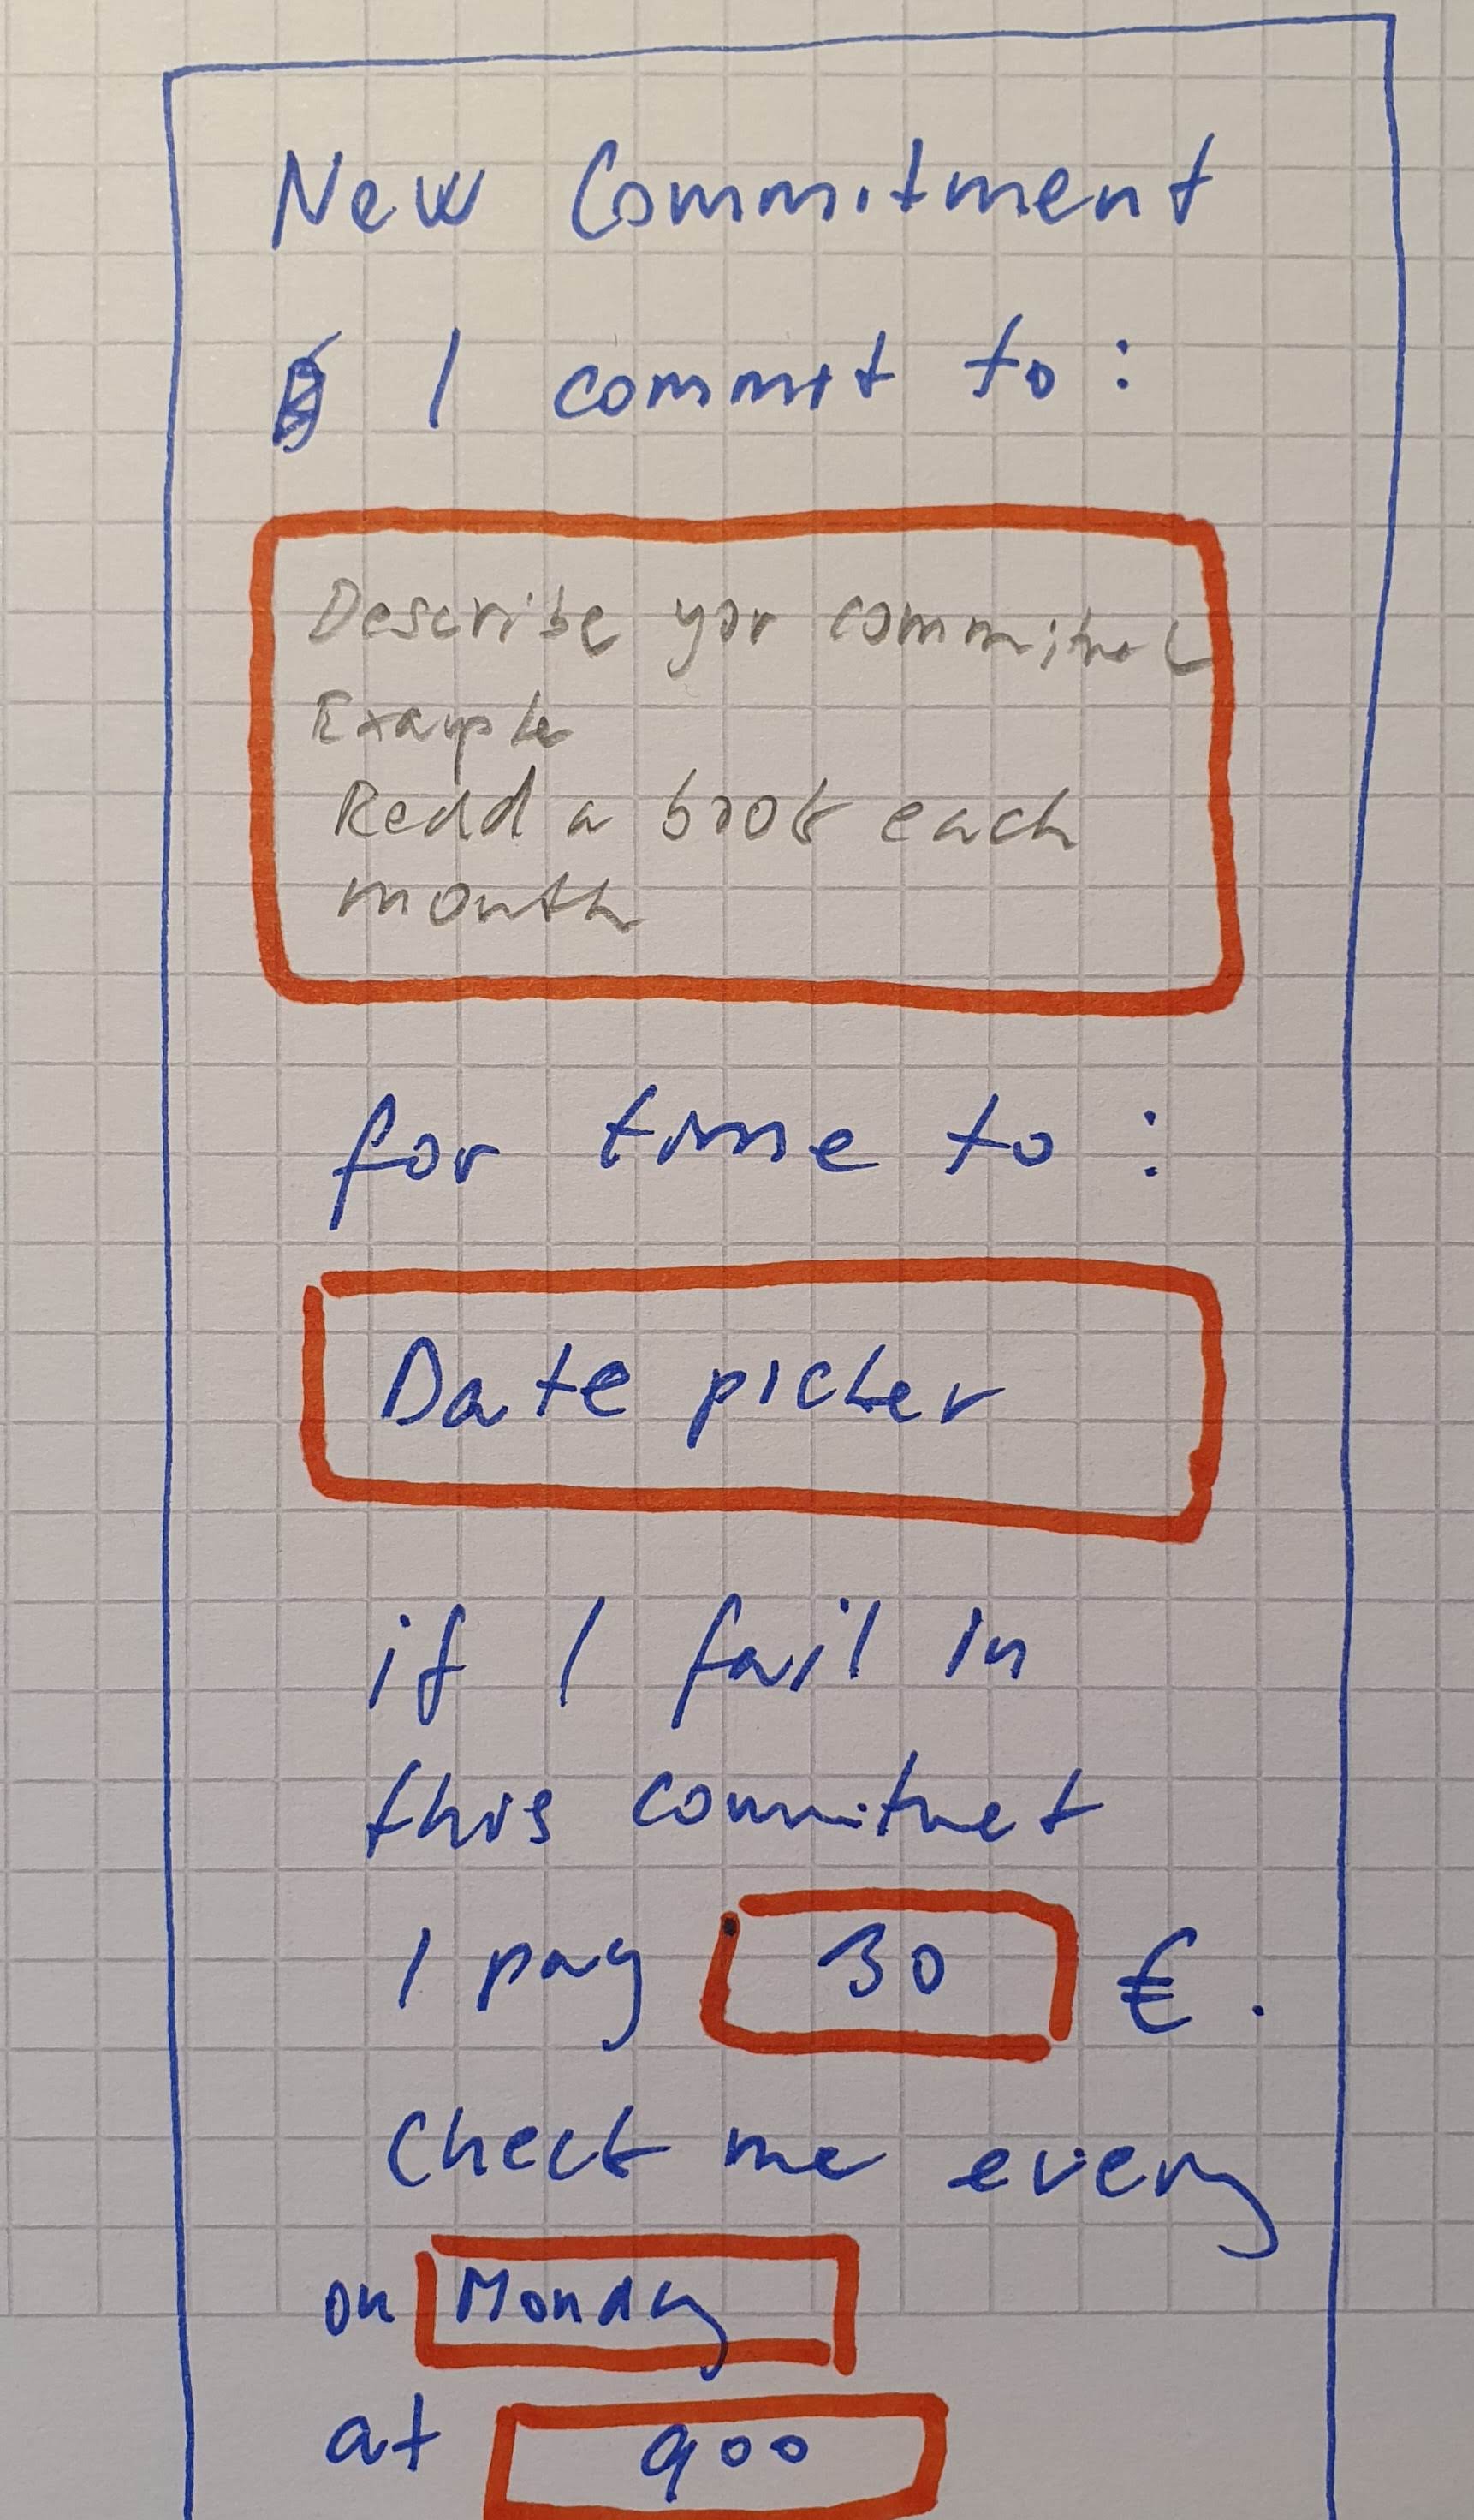 New Commitment
I commit to:
Describe yor commitmet
Example
Read a book each
month
for time to:
Date picker
if I fail in
this commitmet
I pay 30 €.
Check me every
on Monday
at 900